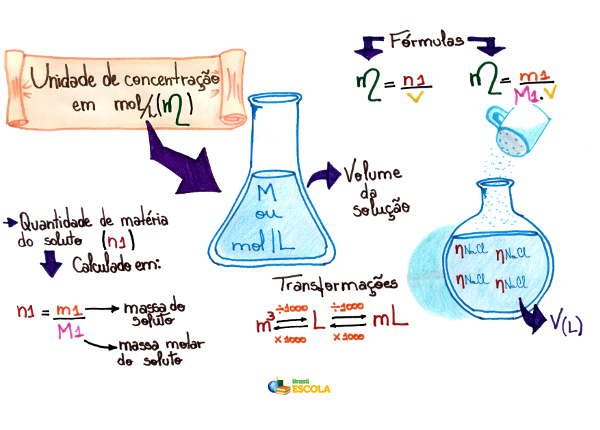 Unidade de concentração
em mol/L (M)
Fórmulas
M = n1
V
M = m1
M1.V
M
ou
mol/L
Volume
da
solução
→ Quantidade de matéria
do soluto (n1)
Calculado em:
n1 = m1 → massa do
soluto
M1
massa molar
do soluto
Transformações
÷1000 ÷1000
m³ L mL
x1000 x1000
nNaCl nNaCl
nNaCl nNaCl
V(L)
Brasil
ESCOLA